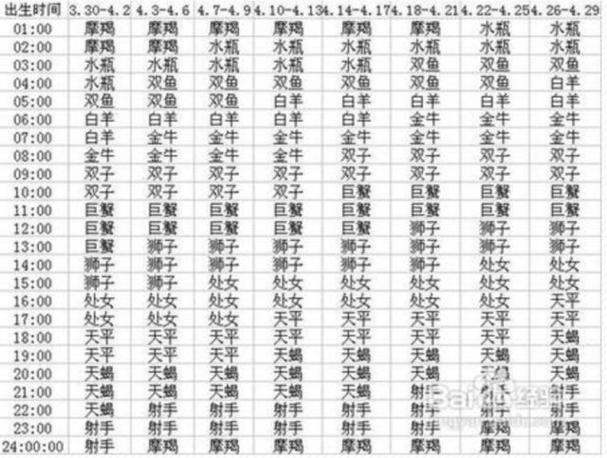 出生时间 3.30-4.2 4.3-4.6 4.7-4.9 4.10-4.13 4.14-4.17 4.18-4.21 4.22-4.25 4.26-4.29
01:00 摩羯 摩羯 摩羯 摩羯 摩羯 摩羯 水瓶 水瓶
02:00 摩羯 摩羯 水瓶 水瓶 水瓶 水瓶 水瓶 水瓶
03:00 水瓶 水瓶 水瓶 水瓶 水瓶 双鱼 双鱼 双鱼
04:00 水瓶 双鱼 双鱼 双鱼 双鱼 双鱼 双鱼 白羊
05:00 双鱼 双鱼 双鱼 白羊 白羊 白羊 白羊 白羊
06:00 白羊 白羊 白羊 白羊 白羊 金牛 金牛 金牛
07:00 白羊 金牛 金牛 金牛 金牛 金牛 金牛 金牛
08:00 金牛 金牛 金牛 金牛 双子 双子 双子 双子
09:00 双子 双子 双子 双子 双子 双子 双子 双子
10:00 双子 双子 双子 双子 巨蟹 巨蟹 巨蟹 巨蟹
11:00 巨蟹 巨蟹 巨蟹 巨蟹 巨蟹 巨蟹 巨蟹 巨蟹
12:00 巨蟹 巨蟹 巨蟹 巨蟹 巨蟹 狮子 狮子 狮子
13:00 巨蟹 狮子 狮子 狮子 狮子 狮子 狮子 狮子
14:00 狮子 狮子 狮子 狮子 狮子 狮子 处女 处女
15:00 狮子 狮子 处女 处女 处女 处女 处女 处女
16:00 处女 处女 处女 处女 处女 处女 处女 天平
17:00 处女 处女 处女 天平 天平 天平 天平 天平
18:00 天平 天平 天平 天平 天平 天平 天平 天蝎
19:00 天平 天平 天平 天蝎 天蝎 天蝎 天蝎 天蝎
20:00 天蝎 天蝎 天蝎 天蝎 天蝎 天蝎 天蝎
21:00 天蝎 天蝎 天蝎 天蝎 天蝎
22:00 天蝎 射手 射手 射手 射手 射手 射手 射手
23:00 射手 射手 射手 射手 射手 射手 摩羯 摩羯
24:00:00 射手 摩羯 摩羯 摩羯 摩羯 摩羯 摩羯 摩羯
Baidu 经验